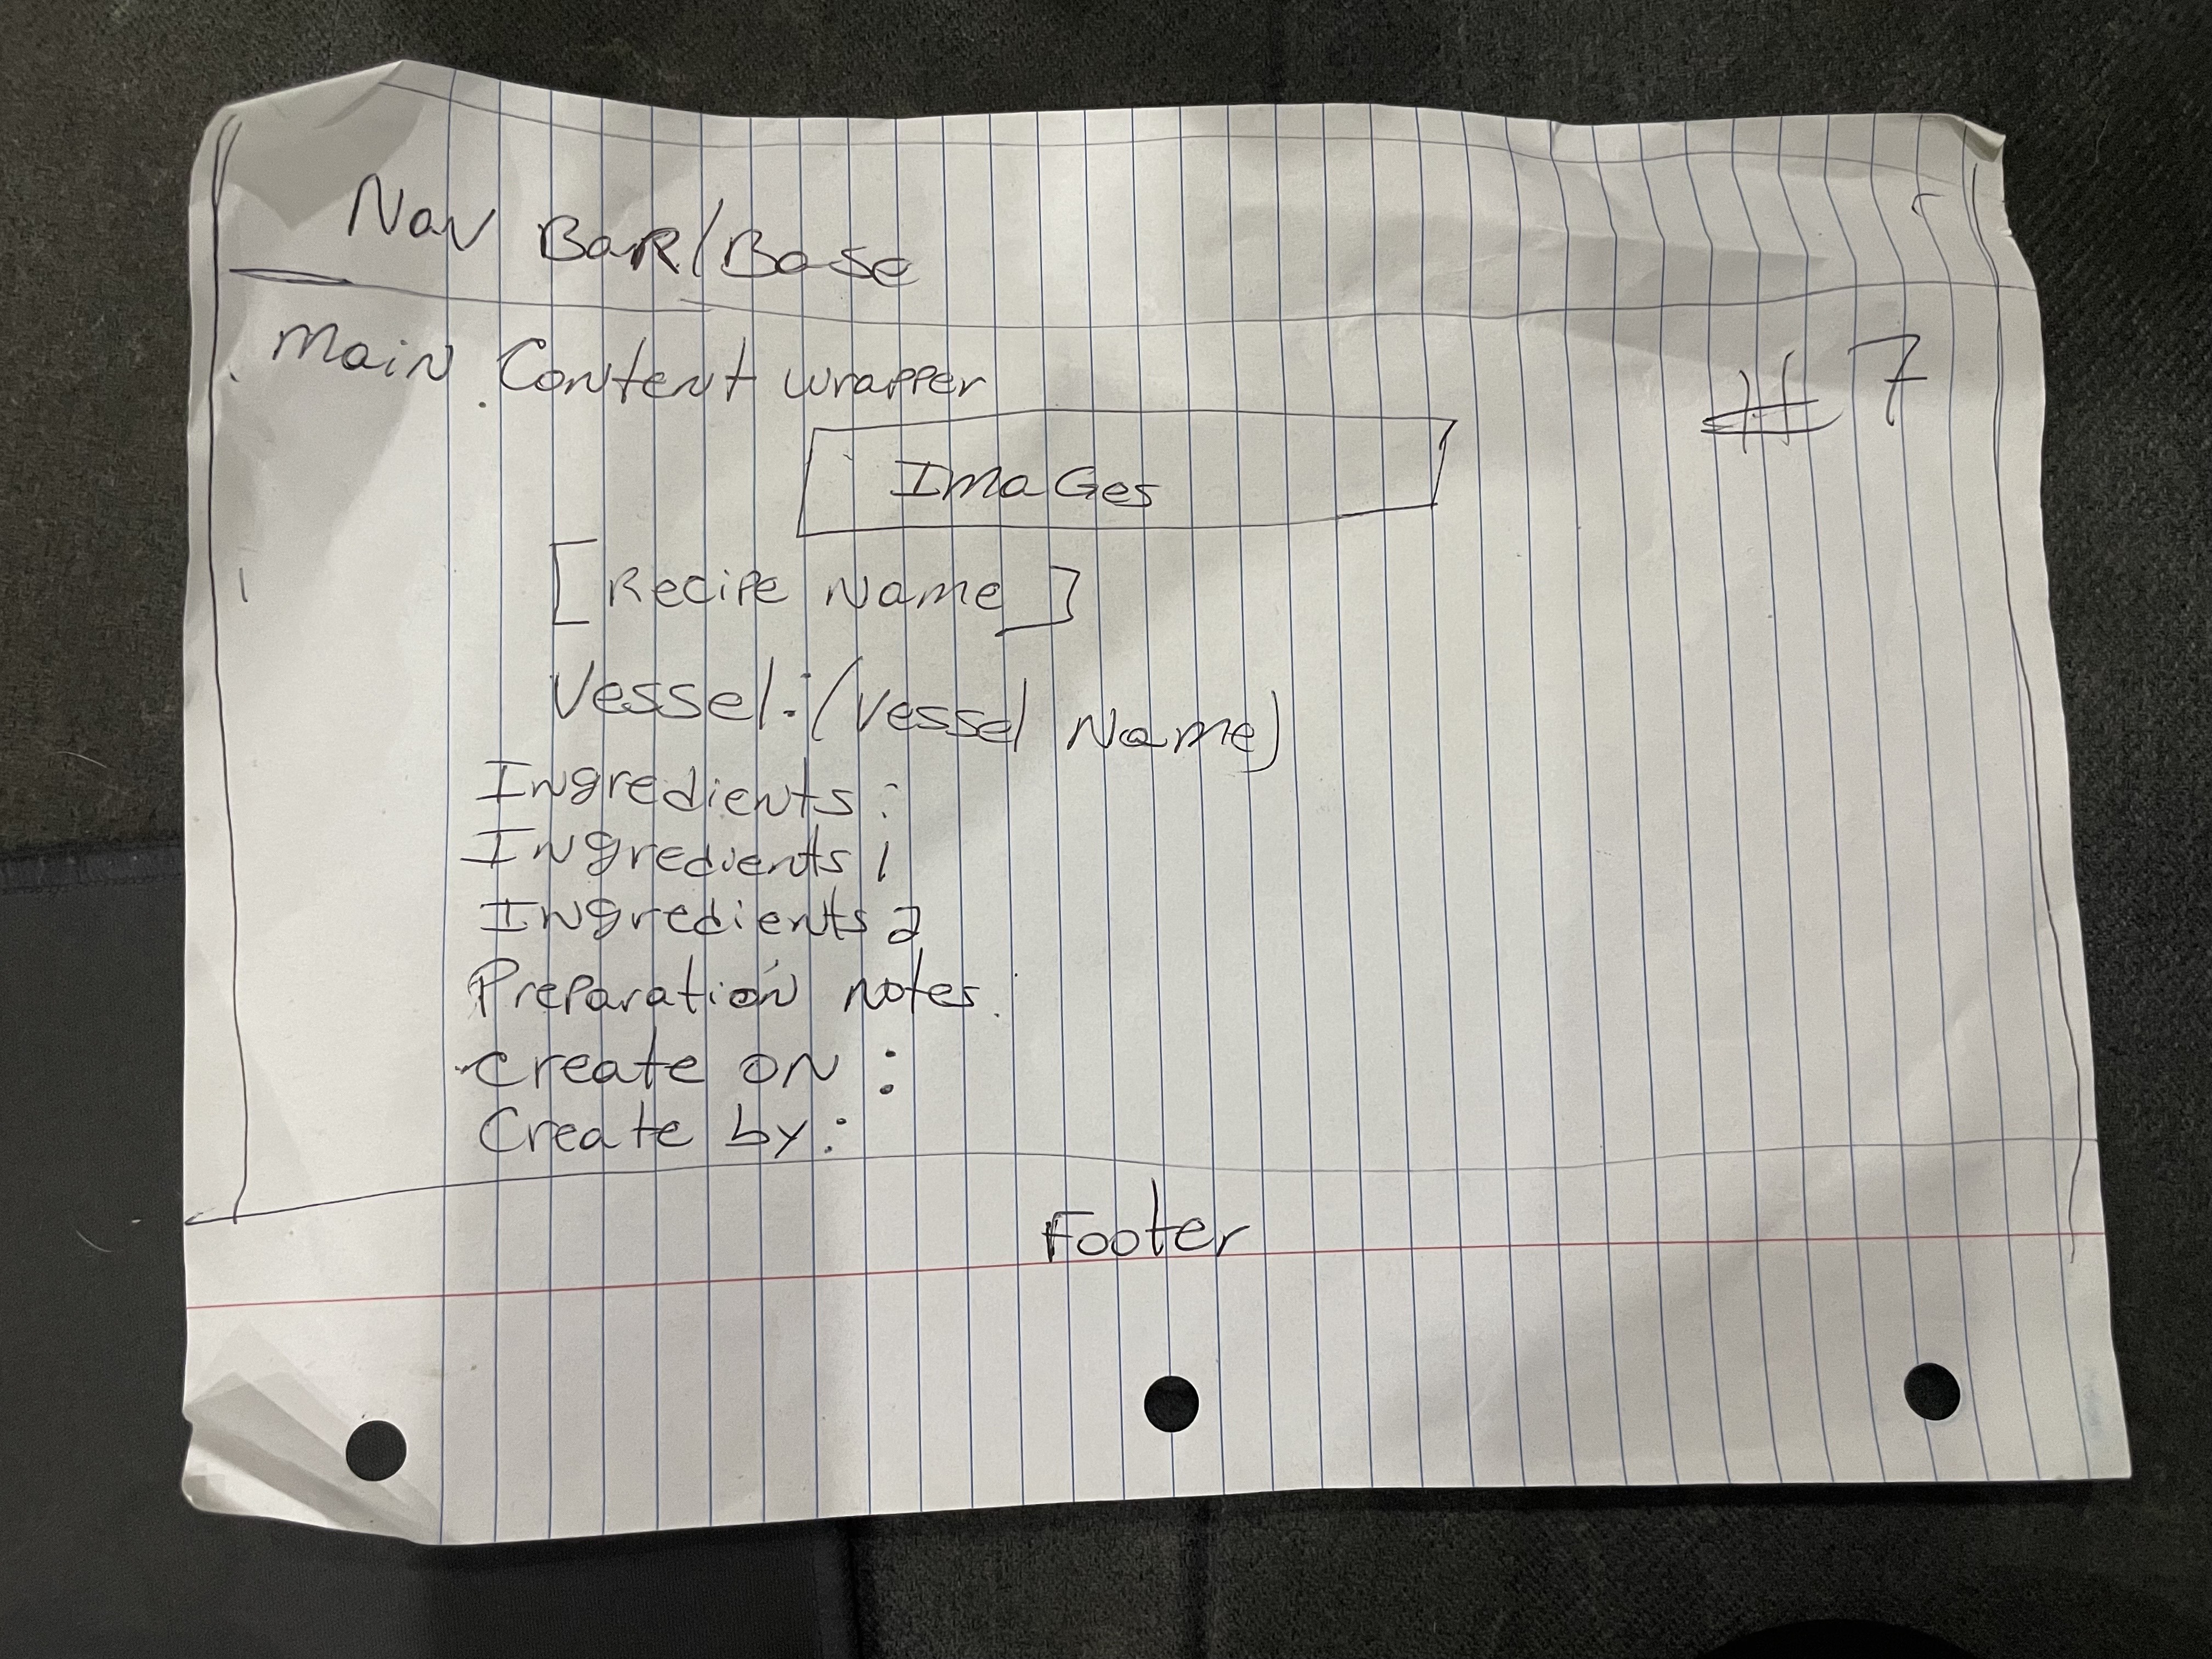 Nav BaR/Base
Main Content wrapper
# 7
ImaGes
[Recipe Name]
Vessel: (Vessel Name)
Ingredients:
Ingredients 1
Ingredients 2
Preparation notes.
create on :
Create by:
Footer